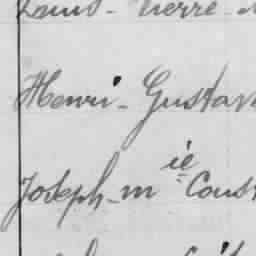 Louis-Pierre-
Henri-Gustav
Joseph-m ie Const